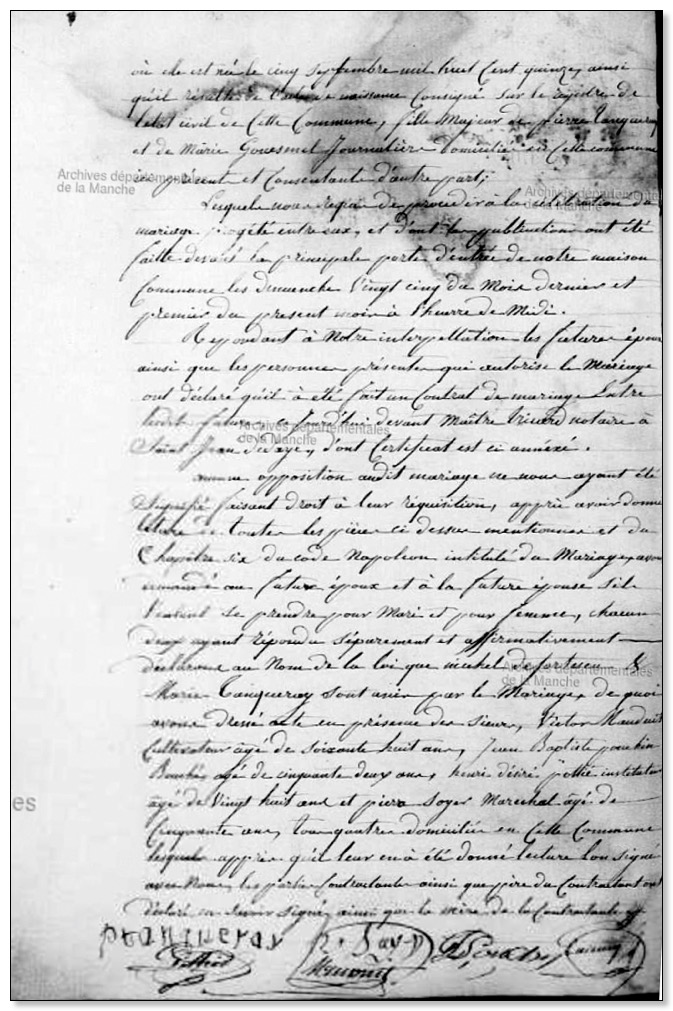 où elle est née le cinq septembre mil huit Cent quinze, ainsi
qu'il résulte de l'acte de naissance Consigné sur le registre de
l'état civil de Cette Commune, fille Majeur de pierre Tanqueray
et de Marie Gouesmel Journalière domicilié en Cette commune
Archives départementales
de la Manche
ici présent et Consentante d'autre part;
Archives départementales
de la Manche
Lesquels nous requis de procedér à la célébration du
mariage progété entre eux, et d'ont les publications ont été
faitte devant la principale porte d'entrée de notre maison
Commune les dimenche Vingt cinq du Mois dernier et
premier du present mois à l'heurre de Midi.
Repondant à Notre interpellation les futures époux
ainsi que les personnes présentes qui autorise le Mariage
ont déclaré qu'il à été fait un Contrat de mariage Entre
les dits futurs, devant Maître notaire à
Archives départementales
de la Manche
Saint Jean , d'ont Certificat est ci annéxé.
aucune opposition audit mariage ne nous ayant été
Signifié faisant droit à leur réquisition, apprè avoir donné
lecture de toutes les pièces ci dessus mentionnes et du
Chapitre six du code Napoléon intitulé du Mariage, avons
demandé au future époux et à la future épouse s'il
Veulent se prendre pour Mari et pour femme, chacun
deux ayant répondu séparement et affirmativement
déclarons au Nom de la loi que michel defortescu &
Archives départementales
de la Manche
Marie Tanqueray sont unis par le Mariage, de quoi
avons dressé acte en présence des Sieurs, Victor Mauduit
Cultivateur âgé de soixante huit ans, Jean Baptiste
âgé de cinquante deux ans, henri désiré instituteur
âgé de Vingt huit ans et pierre Marechal âgé de
Cinquante ans, tous quatres domiciliés en Cette Commune
es
lesquels apprès qu'il leur en à été donné lecture l'on signé
avec Nous, les parties Contractantes ainsi que père du Contractant ont
déclaré ne savoir signé, ainsi que la mère de la Contractante
ptanqueray